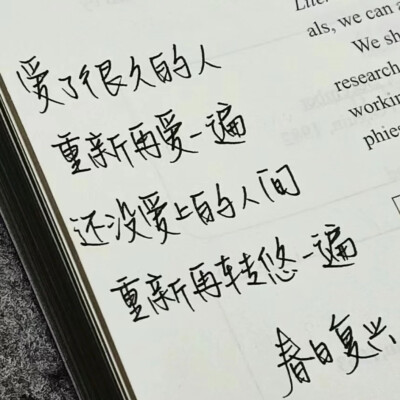 爱了很久的人
重新再爱一遍
还没爱上的人间
重新再转悠一遍
春日复兴
als, we can a
We sho
research
working
phies